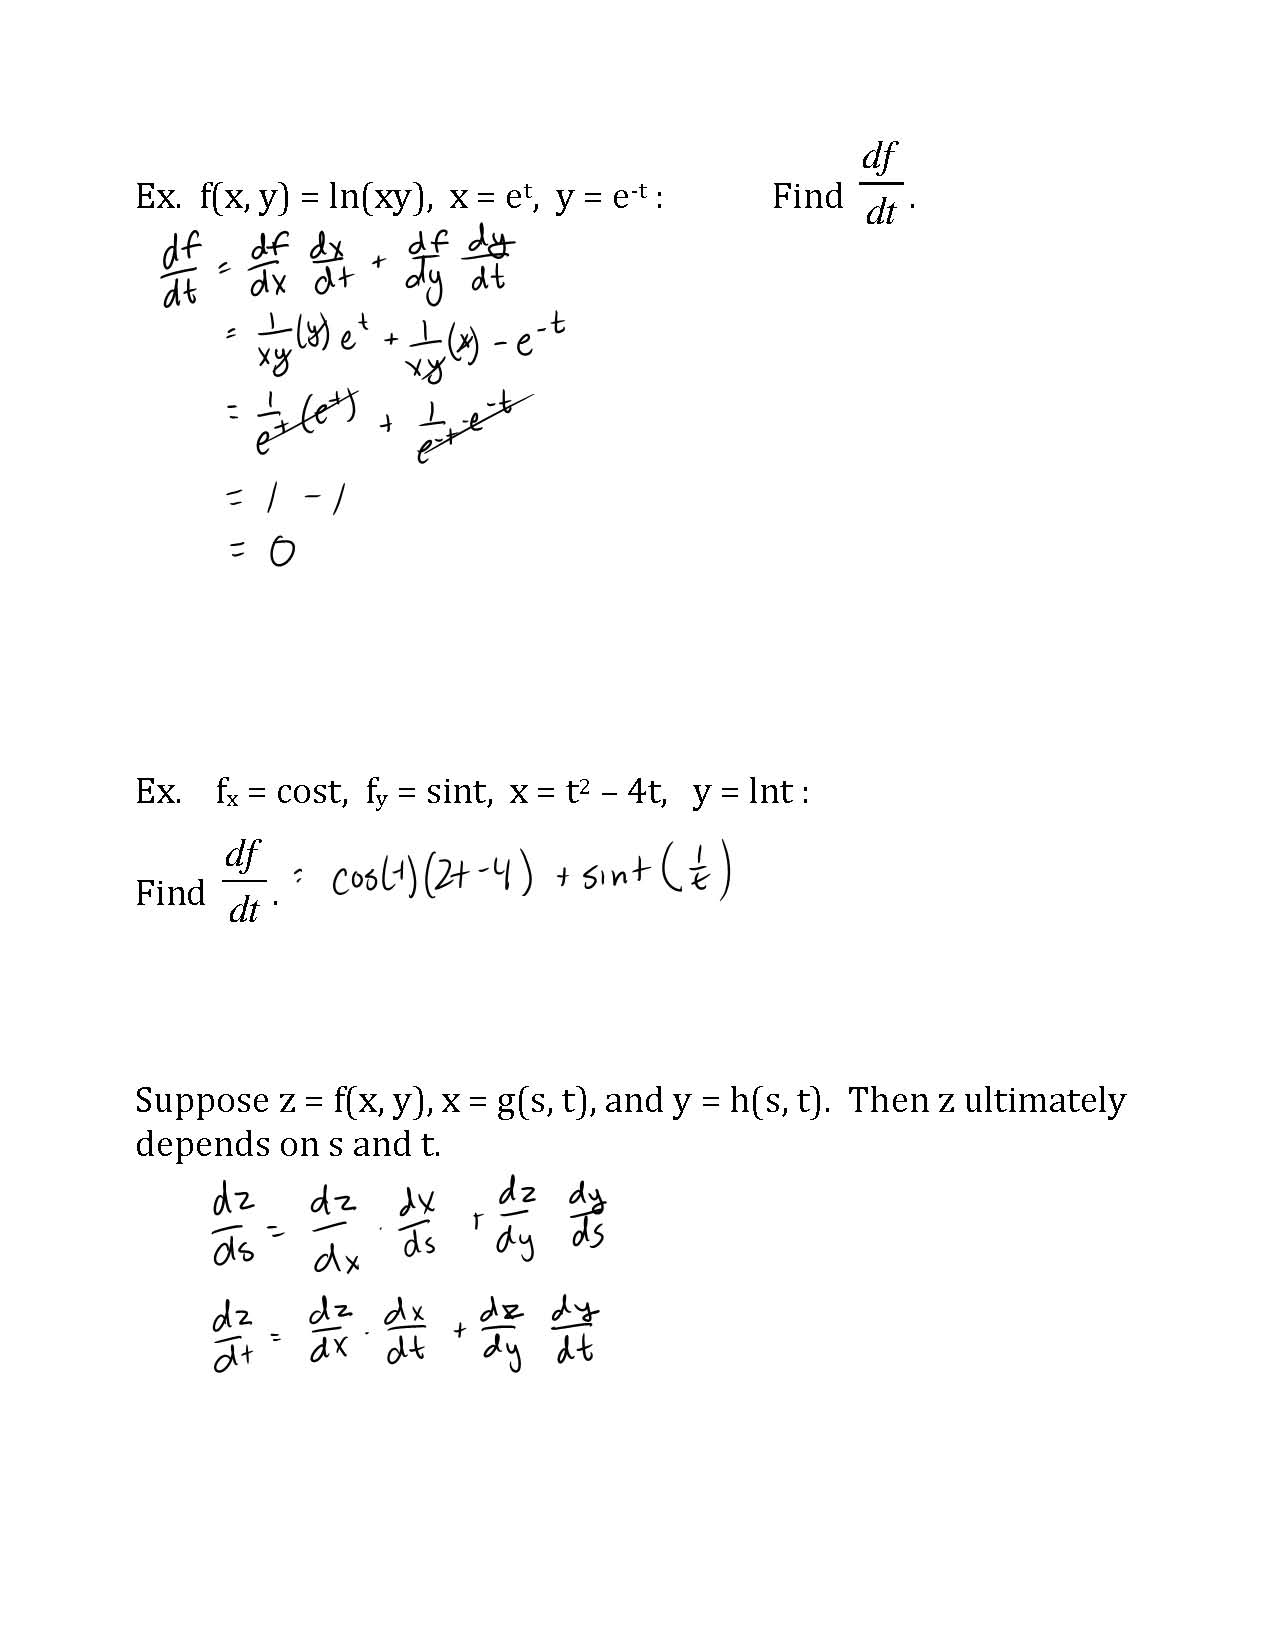 Ex. f(x, y) = ln(xy), x = eᵗ, y = e⁻ᵗ : Find df/dt.
df/dt = df/dx dx/dt + df/dy dy/dt
= 1/xy (y) eᵗ + 1/xy (x) - e⁻ᵗ
= 1/eᵗ (eᵗ) + 1/e⁻ᵗ · -e⁻ᵗ
= 1 - 1
= 0
Ex. fₓ = cost, fᵧ = sint, x = t² – 4t, y = lnt :
Find df/dt. = cos(t)(2t - 4) + sint (1/t)
Suppose z = f(x, y), x = g(s, t), and y = h(s, t). Then z ultimately
depends on s and t.
dz/ds = dz/dx · dx/ds + dz/dy dy/ds
dz/dt = dz/dx · dx/dt + dz/dy dy/dt